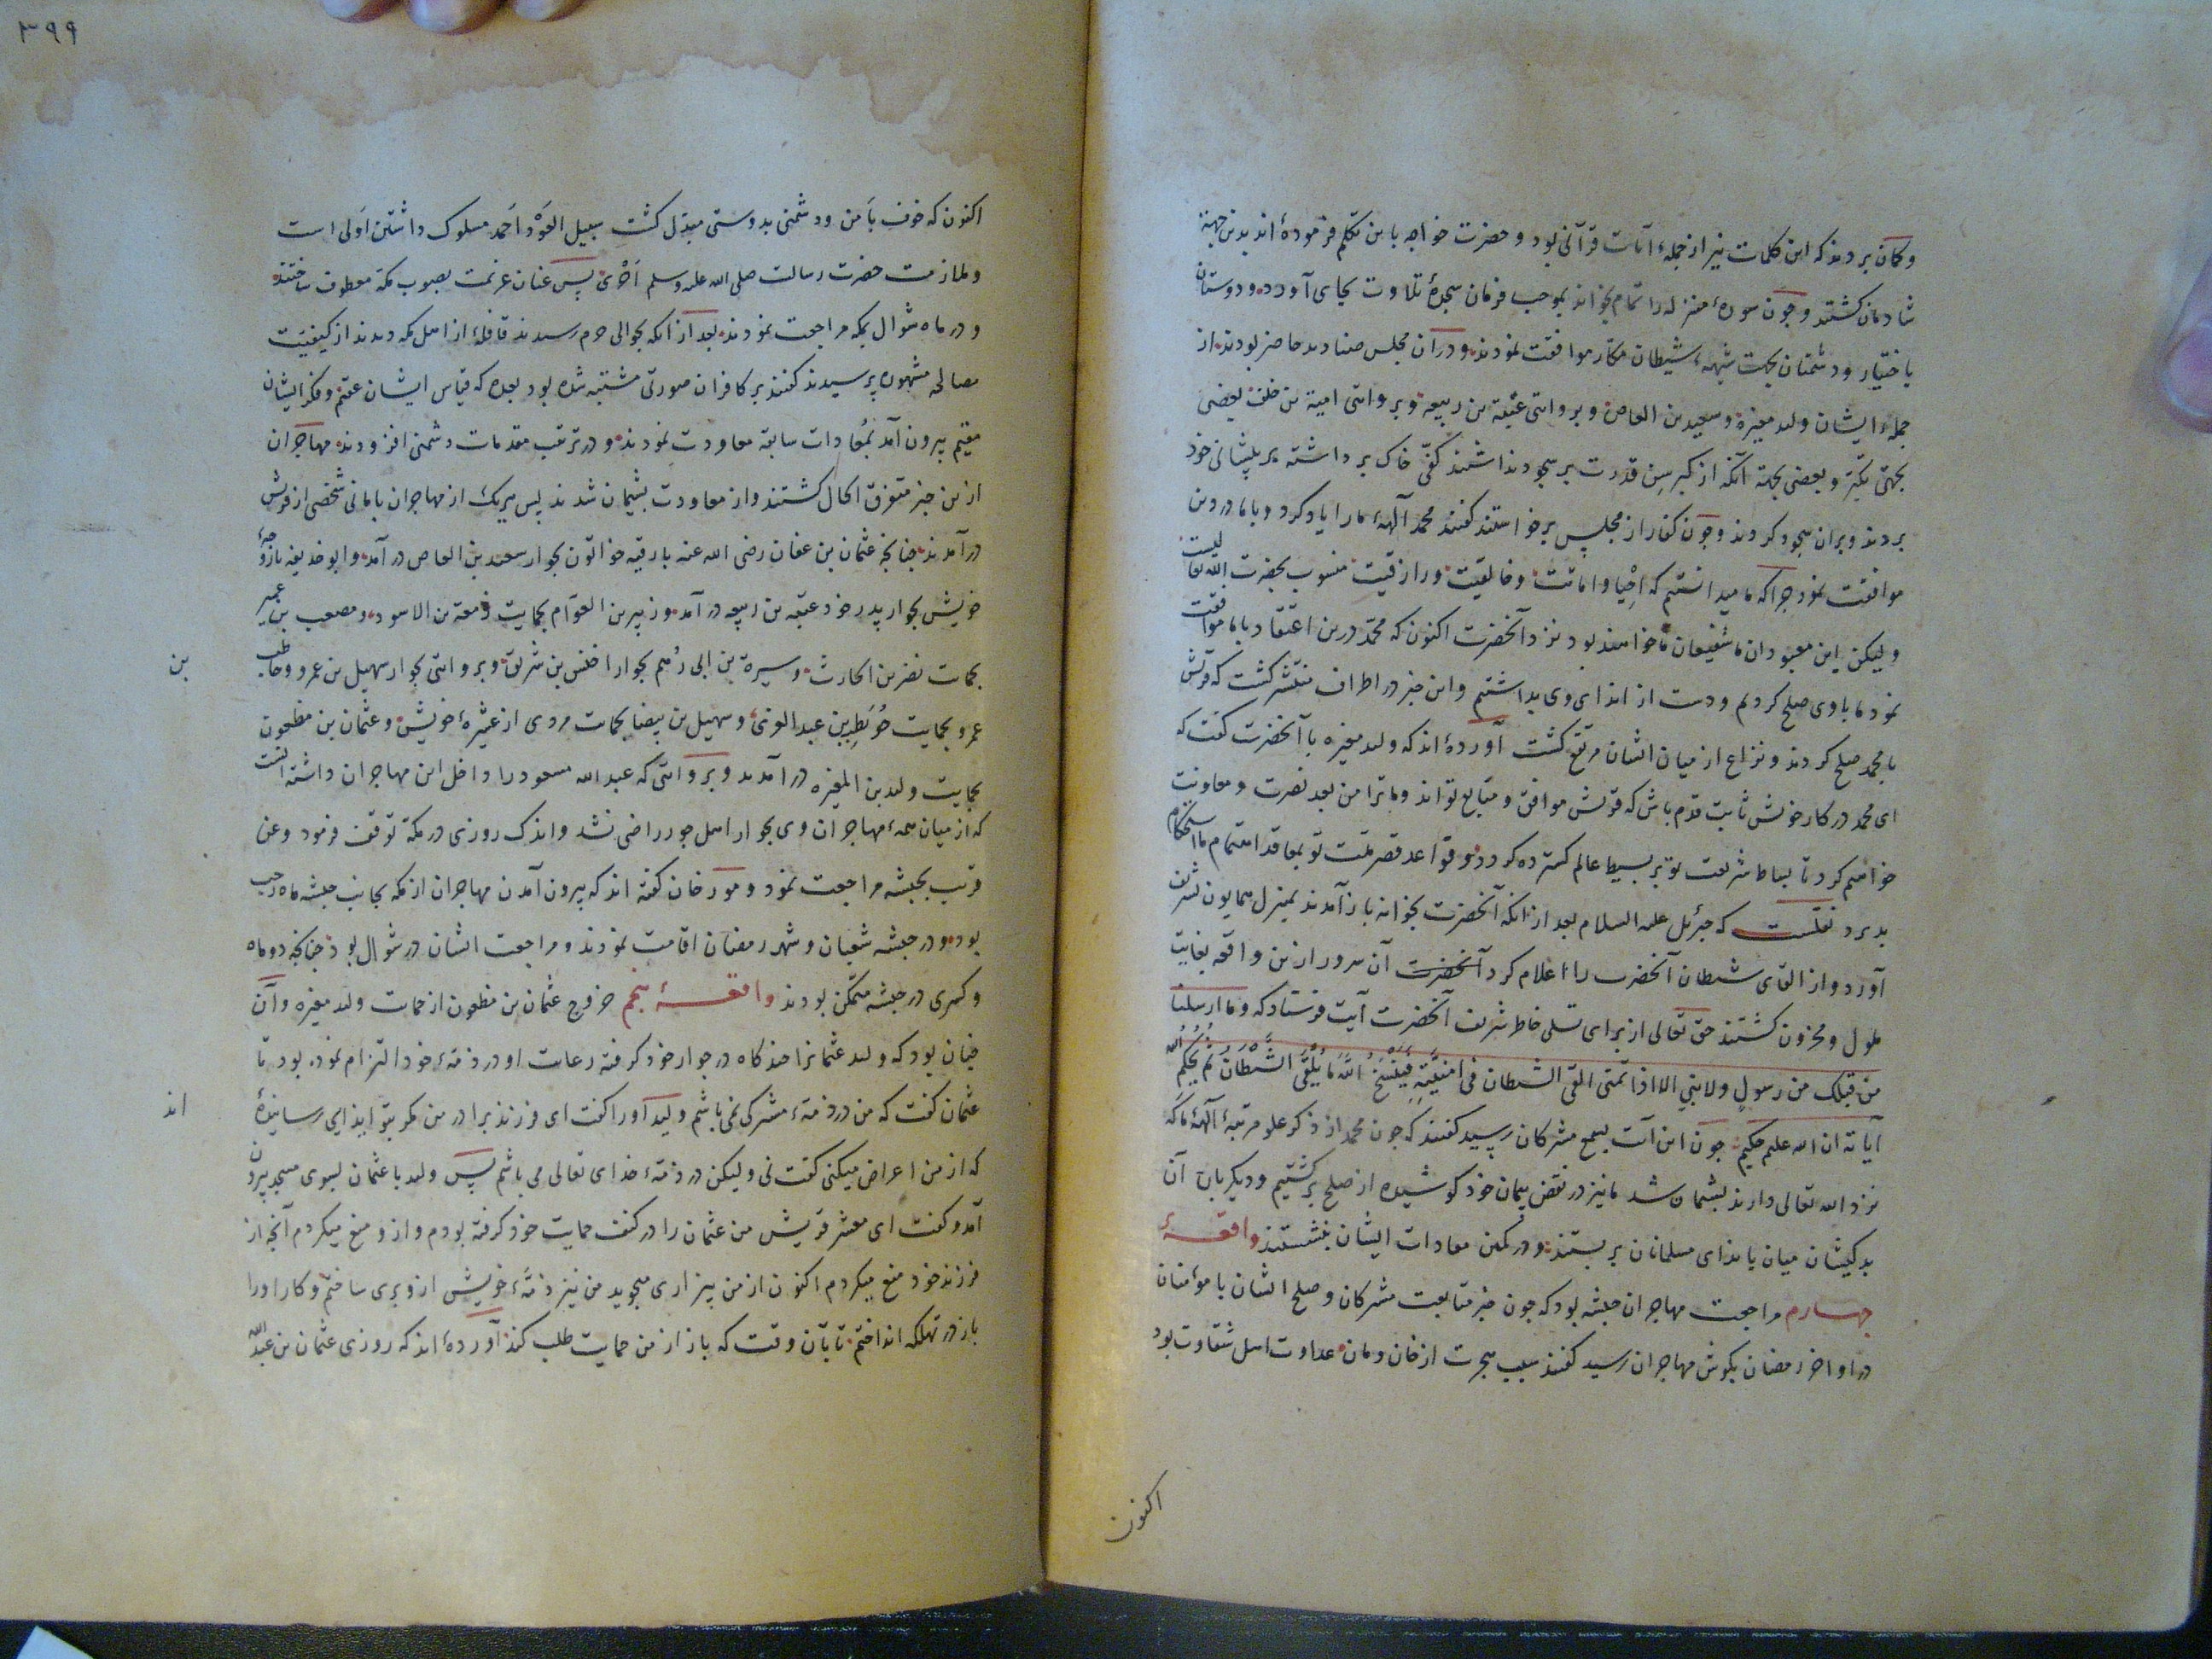 وکمان بردند که این کلمات نیز از جملهٔ آیات قرآنی بود و حضرت خواجه باین تکلم فرموده‌ٔ اند بدین جهة
شادمان کشتند و چون سورهٔ منزله را تمام بخواند بموجب فرمان سجدهٔ تلاوت بجای آورد و دوستان
باختیار و دشمنان بجهت شبههٔ شیطان مکار موافقت نمودند و در آن مجلس صنادید حاضر بودند از
جملهٔ ایشان ولید مغیره و سعید بن العاص و بروایتی عتبة بن ربیعه و بروایتی امیة بن خلف بعضی
بجهتی تکبّر و بعضی بجهة آنکه از کبر سِن قدرت بر سجود نداشتند کفّی خاک برداشته بر پیشانی خود
بردند و بران سجود کردند و چون کفار از مجلس برخواستند کفتند محمد آلههٔ ما را یاد کرد و با ما در دین
موافقت نمود چراکه ما میدانستیم که اِحْیا و اماتت و خالقیت و رازقیت منسوب بحضرت الله تعالیست
ولیکن این معبودان ما شفیعان ما خواهند بود نزد آنحضرت اکنون که محمّد درین اعتقاد با ما موافقت
نمود ما با وی صلح کردیم و دست از ایذای وی بداشتیم و این خبر در اطراف منتشر کشت که قریش
با محمد صلح کردند و نزاع از میان ایشان مرتفع کشت آورده‌ٔ اند که ولید مغیره با آنحضرت کفت که
ای محمد در کار خویش ثابت قدم باش که قریش موافق و متابع تو اند و ما ترا من بعد نصرت و معاونت
خواهیم کرد تا بساط شریعت تو بر بسیط عالم کسترده کردد و قواعد قصر ملت تو بمعاقد اهتمام ما استحکام
پذیرد نقلست که جبرئیل علیه السلام بعد از آنکه آنحضرت بخانه باز آمدند بمنزل همایون تشریف
آورد و از القای شیطان آنحضرت را اعلام کرد آنحضرت آن سرور ازین واقعه بغایت
ملول و محزون کشتند حق تعالی از برای تسلی خاطر شریف آنحضرت آیت فرستاد که وما ارسلنا
من قبلک من رسول ولا نبی الا اذا تمنی القی الشیطان فی امنیّتِه فَیَنْسَخُ اللّٰهُ مَا یُلْقِی الشَّیْطَانُ ثُمَّ یُحْکِمُ الله
آیاته ان الله علیم حکیم چون این آیت بسمع مشرکان رسید کفتند که چون محمد از ذکر علو مرتبهٔ آلههٔ ما که
نزد الله تعالی دارند پشیمان شد ما نیز در نقض پیمان خود کوشیده از صلح برکشتیم و دیکر باره آن
بدکیشان میان بایذای مسلمانان بربستند و در کمین معادات ایشان بنشستند واقعهٔ
چهارم مراجعت مهاجران حبشه بود که چون خبر متابعت مشرکان و صلح ایشان با مؤمنان
در اواخر رمضان بکوش مهاجران رسید کفتند سبب هجرت از خان و مان عداوت اهل شقاوت بود
اکنون
۳۹۹
اکنون که خوف بأمن و دشمنی بدوستی مبدّل کشت سبیل العَوْد اَحمد مسلوک داشتن اَولی است
و ملازمت حضرت رسالت صلی الله علیه وسلم اَحْرٰی پس عنان عزیمت بصوب مکه معطوف ساختند
و در ماه شوال بمکه مراجعت نمودند بعد از آنکه بحوالی حرم رسیدند قافلهٔ از اهل مکه دیدند از کیفیّت
مصالحهٔ مشهوره پرسیدند کفتند بر کافران صورتی مشتبه شده بود بعده که قیاس ایشان عقیم و فکر ایشان
مقیم بیرون آمد بمُعادات سابقه معاودت نمودند و در ترتیب مقدمات دشمنی افزودند مهاجران
ازین خبر متفرق الحال کشتند و از معاودت پشیمان شدند پس هریک از مهاجران بامانی شخصی از قریش
در آمدند چنانچه عثمان بن عفان رضی الله عنه بارقیه خواتون بجوار سعید بن العاص در آمد و ابو حذیفه بازوجهٔ
خویش بجوار پدر خود عتبه بن ربیعه در آمد و زبیر بن العوّام بحمایت زمعة بن الاسود و مصعب بن عمیر
بحمایت نضر بن الحارث و سبرة بن ابی رُهم بجوار اخنس بن شریق و بروایتی بجوار سهیل بن عمرو و حاطب
بن
عمرو بحمایت حُوَیطِب بن عبد العزی و سهیل بن بیضا بحمایت مردی از عشیرهٔ خویش و عثمان بن مظعون
بحمایت ولید بن المغیره در آمدند و بروایتی که عبد الله مسعود را داخل این مهاجران داشته آنست
که از میان همهٔ مهاجران وی بجوار اهل جور راضی نشد و اندک روزی در مکه توقف فرمود و عن
قریب بحبشه مراجعت نمود و مورخان کفته اند که بیرون آمدن مهاجران از مکه بجانب حبشه ماه رجب
بود و در حبشه شعبان و شهر رمضان اقامت نمودند و مراجعت ایشان در شوال بود چنانچه دو ماه
و کسری در حبشه متمکّن بودند واقعهٔ پنجم خروج عثمان بن مظعون از حمایت ولید مغیره و آن
چنان بود که ولید عثمانرا چند کاه در جوار خود کرفته رعایت او در ذمهٔ خود التزام نموده بود تا
عثمان کفت که من در ذمهٔ مشرکی نمی باشم ولید اورا کفت ای فرزند برادر من مکر بتو ایذایی رسانیدهٔ
اند
که از من اعراض میکنی کفت نی ولیکن در ذمهٔ خدای تعالی می باشم پس ولید با عثمان بسوی مسجد بیرون
آمد و کفت ای معشر قریش من عثمان را در کنف حمایت خود کرفته بودم و ازو منع میکردم آنچه از
فرزند خود منع میکردم اکنون از من بیزاری میجوید من نیز ذمّهٔ خویش ازو بری ساختم و کار اورا
باز در تهلکه انداختم تا بآن وقت که باز از من حمایت طلب کند آورده‌ٔ اند که روزی عثمان بن عبد الله